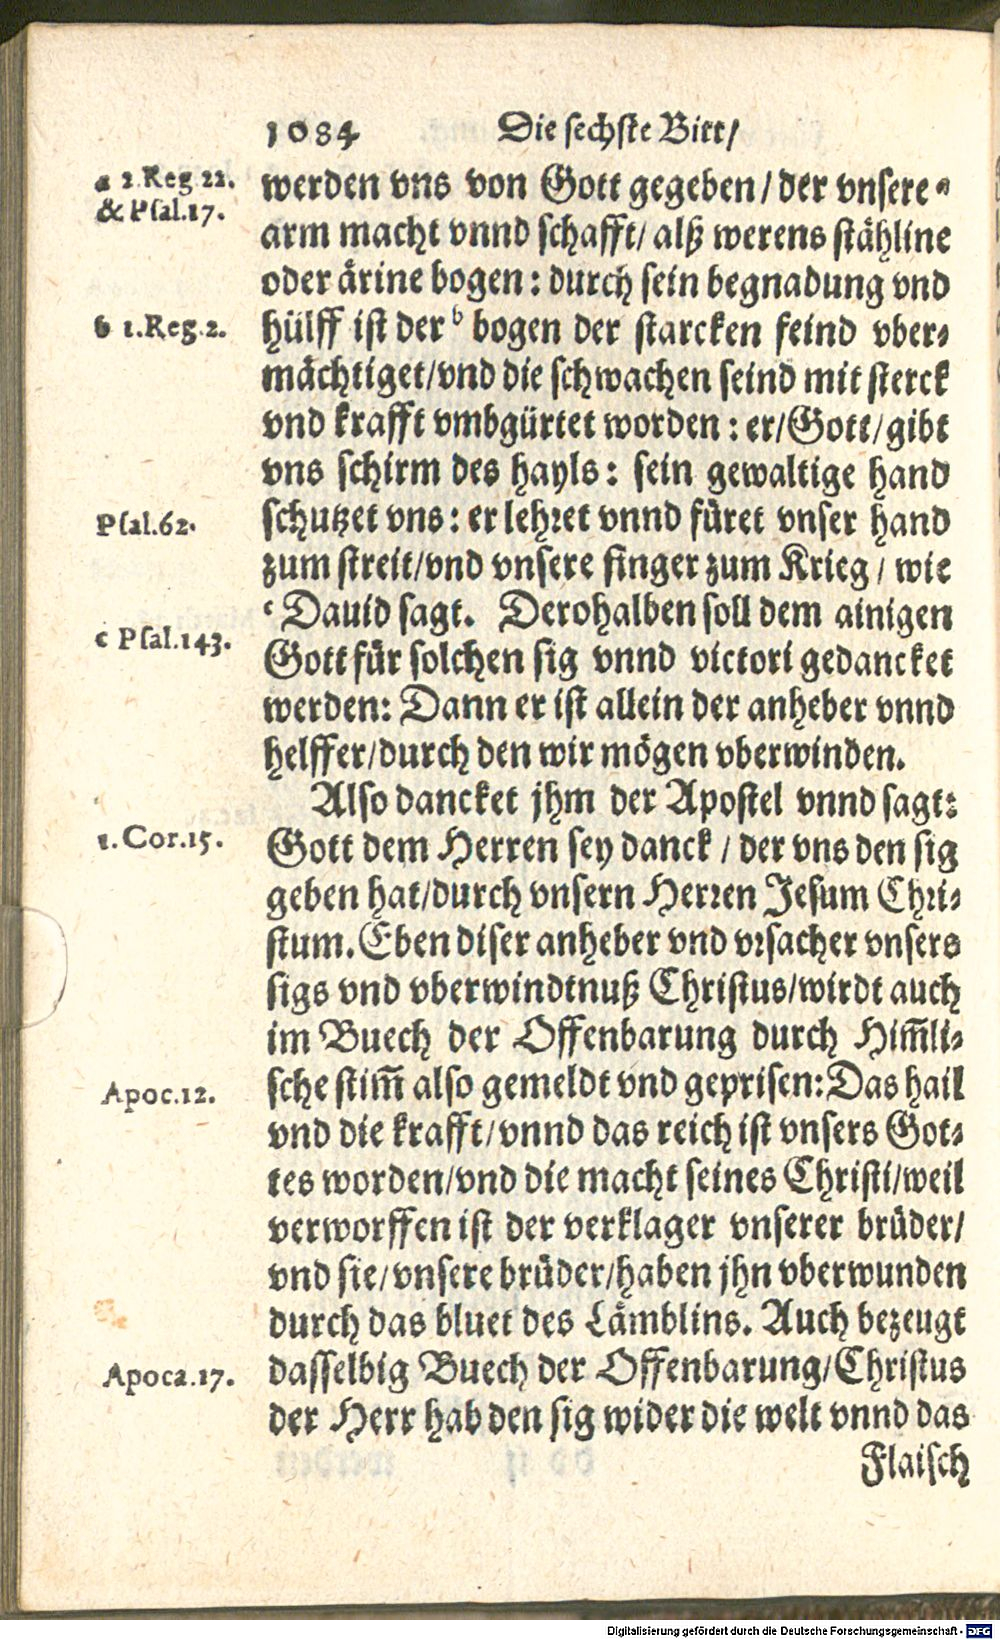 1084 Die sechste Bitt/
a 2.Reg.22.
& Psal.17.
werden vns von Gott gegeben/der vnsere a
arm macht vnnd schafft/ alß werens stähline
oder ärine bogen: durch sein begnadung vnd
b 1.Reg.2.
hülff ist der b bogen der starcken feind vber⸗
mächtiget/vnd die schwachen seind mit sterck
vnd krafft vmbgürtet worden: er/Gott/gibt
vns schirm des hayls: sein gewaltige hand
Psal.62.
schutzet vns: er lehret vnnd füret vnser hand
zum streit/vnd vnsere finger zum Krieg/ wie
c Dauid sagt. Derohalben soll dem ainigen
c Psal.143.
Gott für solchen sig vnnd victori gedancket
werden: Dann er ist allein der anheber vnnd
helffer/durch den wir mögen vberwinden.
Also dancket jhm der Apostel vnnd sagt:
1.Cor.15.
Gott dem Herren sey danck/ der vns den sig
geben hat/durch vnsern Herren Jesum Chri⸗
stum. Eben diser anheber vnd vrsacher vnsers
sigs vnd vberwindtnuß Christus/wirdt auch
im Buech der Offenbarung durch Him̅li⸗
Apoc.12.
sche stim̅ also gemeldt vnd geprisen: Das hail
vnd die krafft/vnnd das reich ist vnsers Got⸗
tes worden/vnd die macht seines Christi/weil
verworffen ist der verklager vnserer brüder/
vnd sie/vnsere brüder/haben jhn vberwunden
durch das bluet des Lämblins. Auch bezeugt
Apoca.17.
dasselbig Buech der Offenbarung/Christus
der Herr hab den sig wider die welt vnnd das
Flaisch
Digitalisierung gefördert durch die Deutsche Forschungsgemeinschaft - DFG